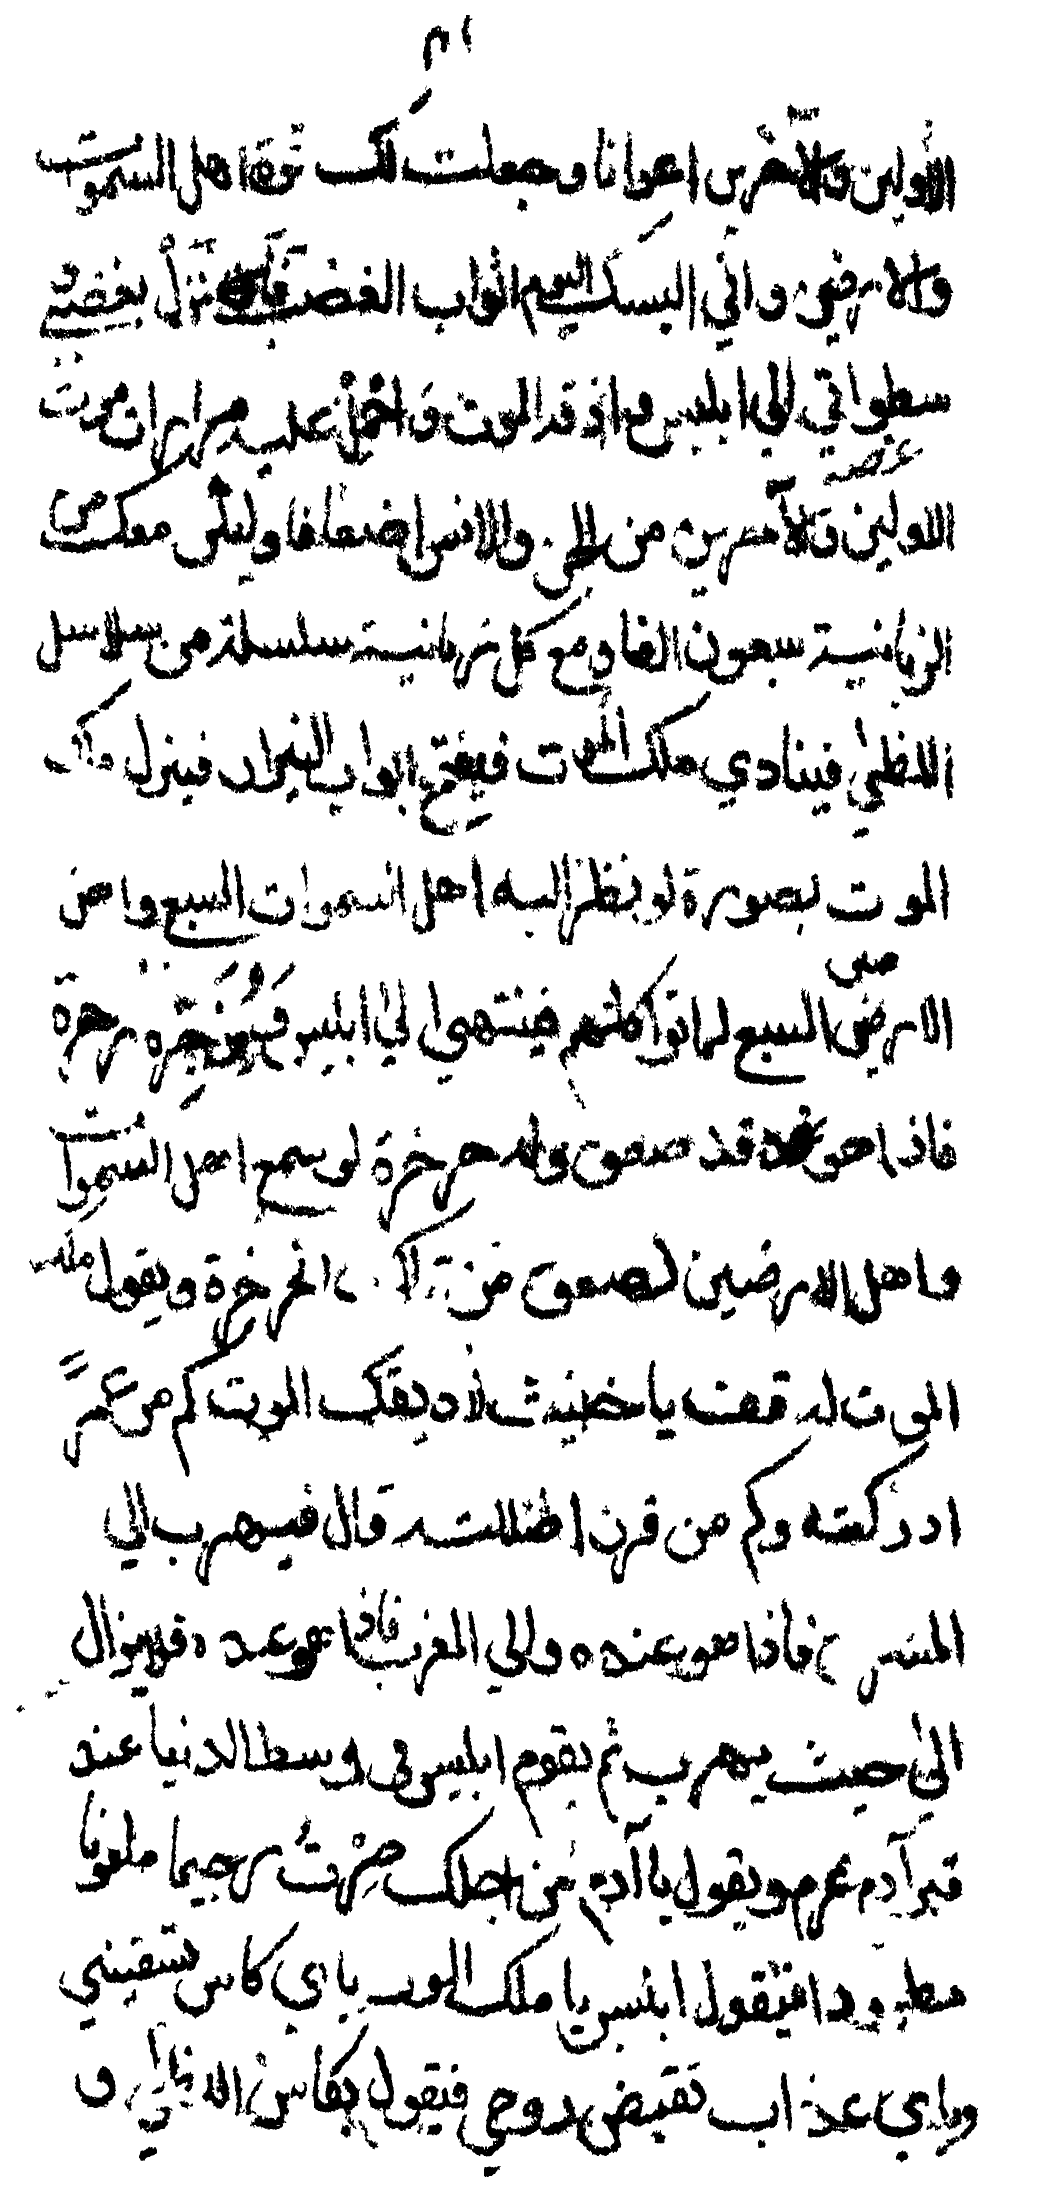 ٢١
الأولين والآخرين اعوانا وجعلت لك قوة اهل السموات
والارضين واني البسك اليوم اثواب الغضب فانزل بغضبي
سطواتي الي ابليس واذقه الموت واحمل عليه مرارات موت
الاولين والآخرين من الجن والانس اضعافا وليكن معك من
الزبانية سبعون الفا ومع كل زبانية سلسلة من سلاسل
اللظى فينادي ملك الموت فيفتح ابواب النيران فينزل ملك
الموت بصورة لو نظر اليه اهل السموات السبع واهل
الارضين السبع لماتوا كلهم فينتهي الي ابليس فيزجره زجرة
فاذا هو قد صعق وله خرخرة لو سمع اهل السموات
واهل الارضين لصعق من تلك الخرخرة ويقول ملك
الموت له قف يا خبيث لاذيقك الموت كم من عمر
ادركته وكم من قرن اضللته قال فيهرب الي
المشرق فاذا هو عنده والي المغرب فاذا هو عنده فلا يزال
الى حيث يهرب ثم يقوم ابليس في وسط الدنيا عند
قبر آدم عم ويقول يا آدم من اجلك صرت رجيما ملعونا
مطرودا فيقول ابليس يا ملك الموت باي كاس تسقيني
وباي عذاب تقبض روحي فيقول بكاس اللظى و